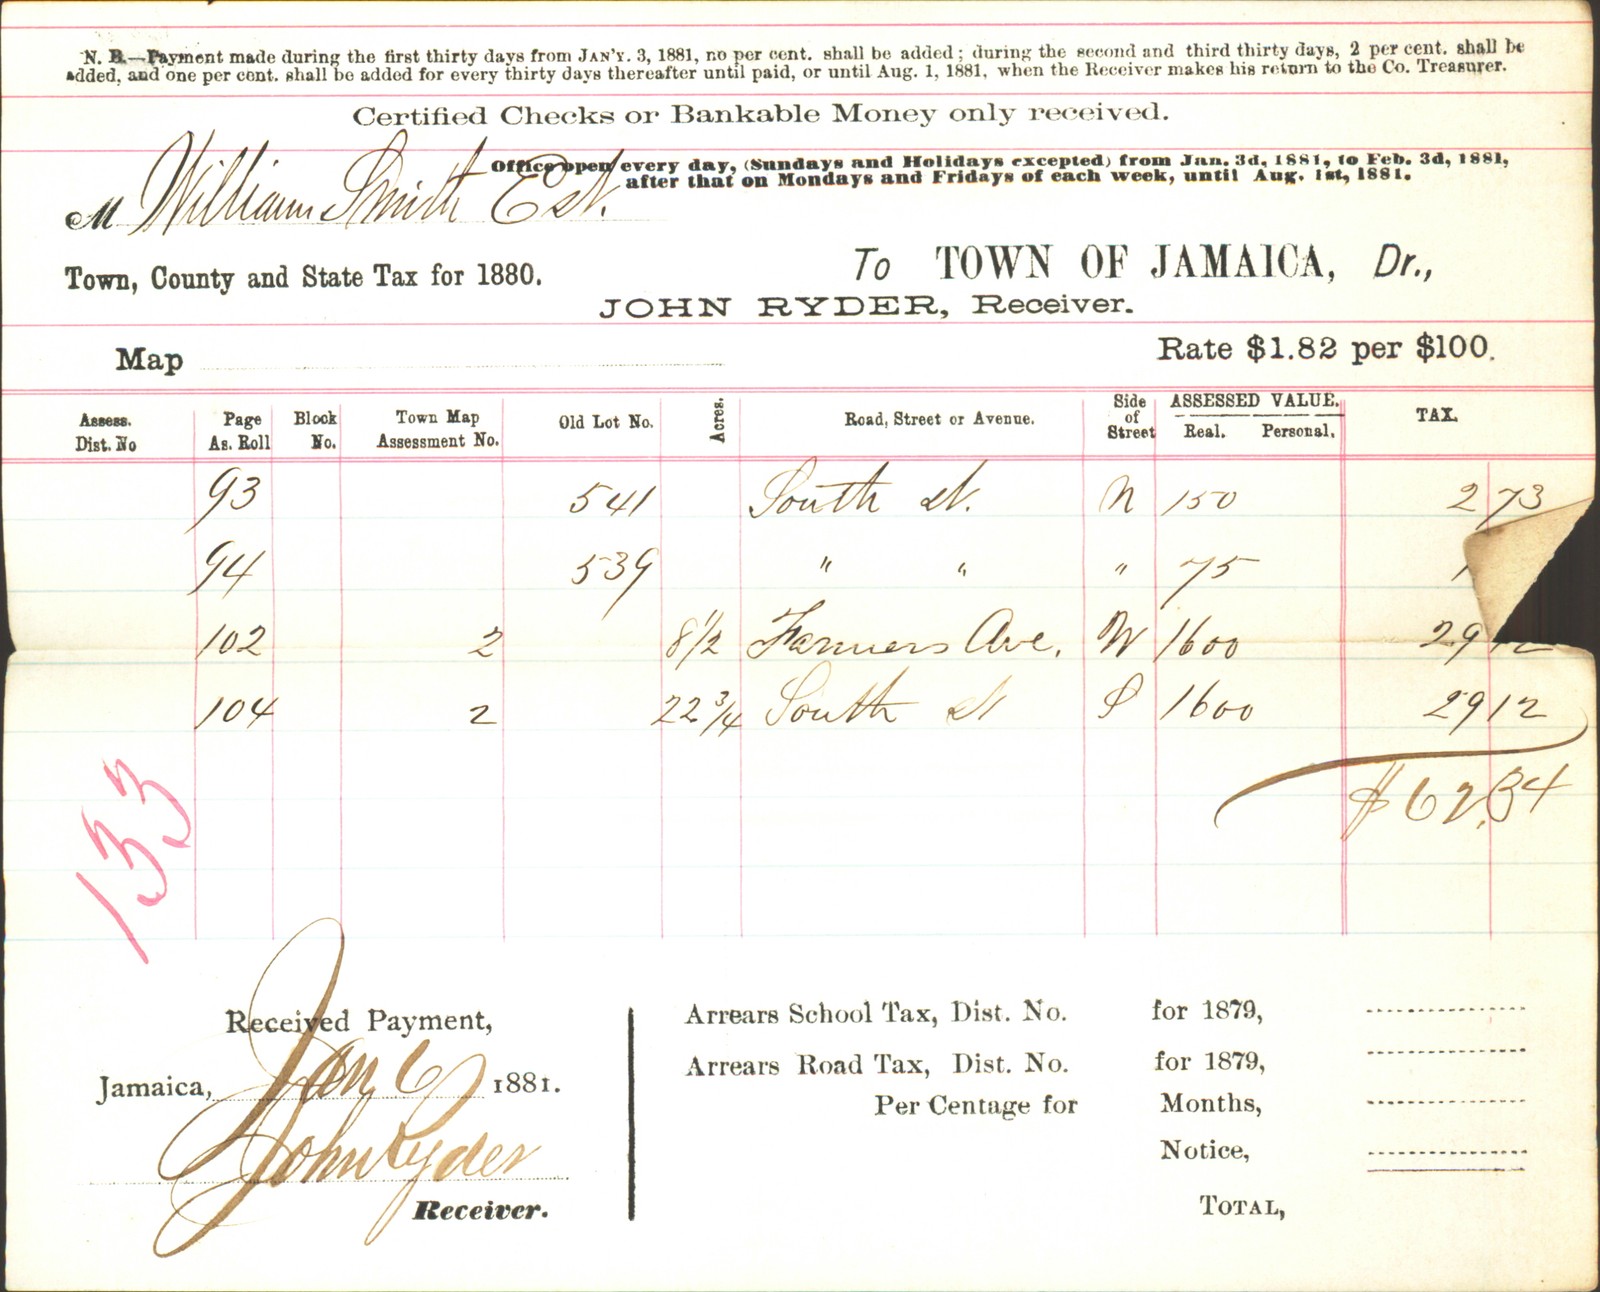 N. B.—Payment made during the first thirty days from JAN'Y. 3, 1881, no per cent. shall be added; during the second and third thirty days, 2 per cent. shall be
added, and one per cent. shall be added for every thirty days thereafter until paid, or until Aug. 1, 1881, when the Receiver makes his return to the Co. Treasurer.
Certified Checks or Bankable Money only received.
Office open every day, (Sundays and Holidays excepted) from Jan. 3d, 1881, to Feb. 3d, 1881,
after that on Mondays and Fridays of each week, until Aug. 1st, 1881.
M William Smith Est.
To TOWN OF JAMAICA, Dr.,
Town, County and State Tax for 1880.
JOHN RYDER, Receiver.
Map
Rate $1.82 per $100.
Assess. Dist. No Page As. Roll Block No. Town Map Assessment No. Old Lot No. Acres. Road, Street or Avenue. Side of Street ASSESSED VALUE. Real. Personal. TAX.
93 541 South St. N 150 2 73
94 539 " " " 75 1
102 2 8 1/2 Farmers Ave. W 1600 29 12
104 2 22 3/4 South St S 1600 29 12
$62.34
133
Received Payment,
Jamaica, Jany 6 1881.
John Ryder
Receiver.
Arrears School Tax, Dist. No. for 1879,
Arrears Road Tax, Dist. No. for 1879,
Per Centage for Months,
Notice,
TOTAL,